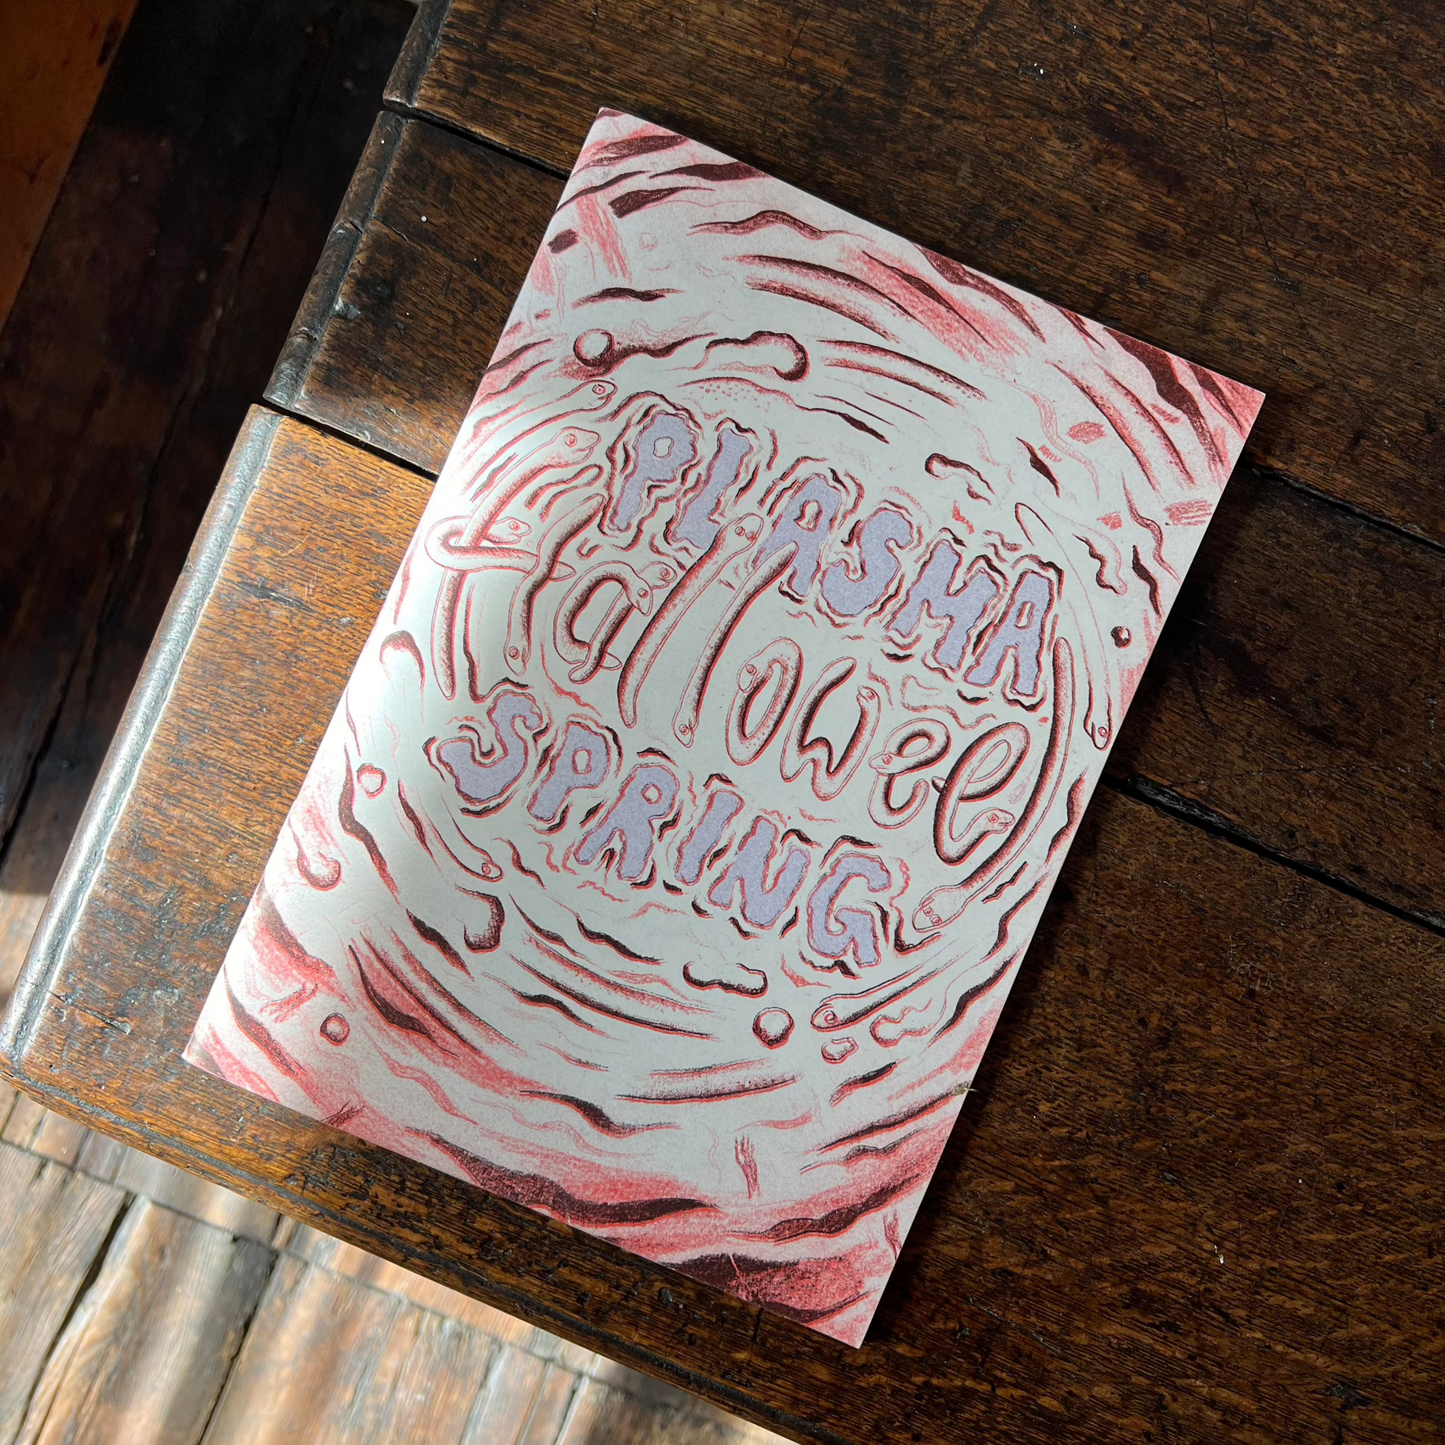 PLASMA
Halloween
SPRING